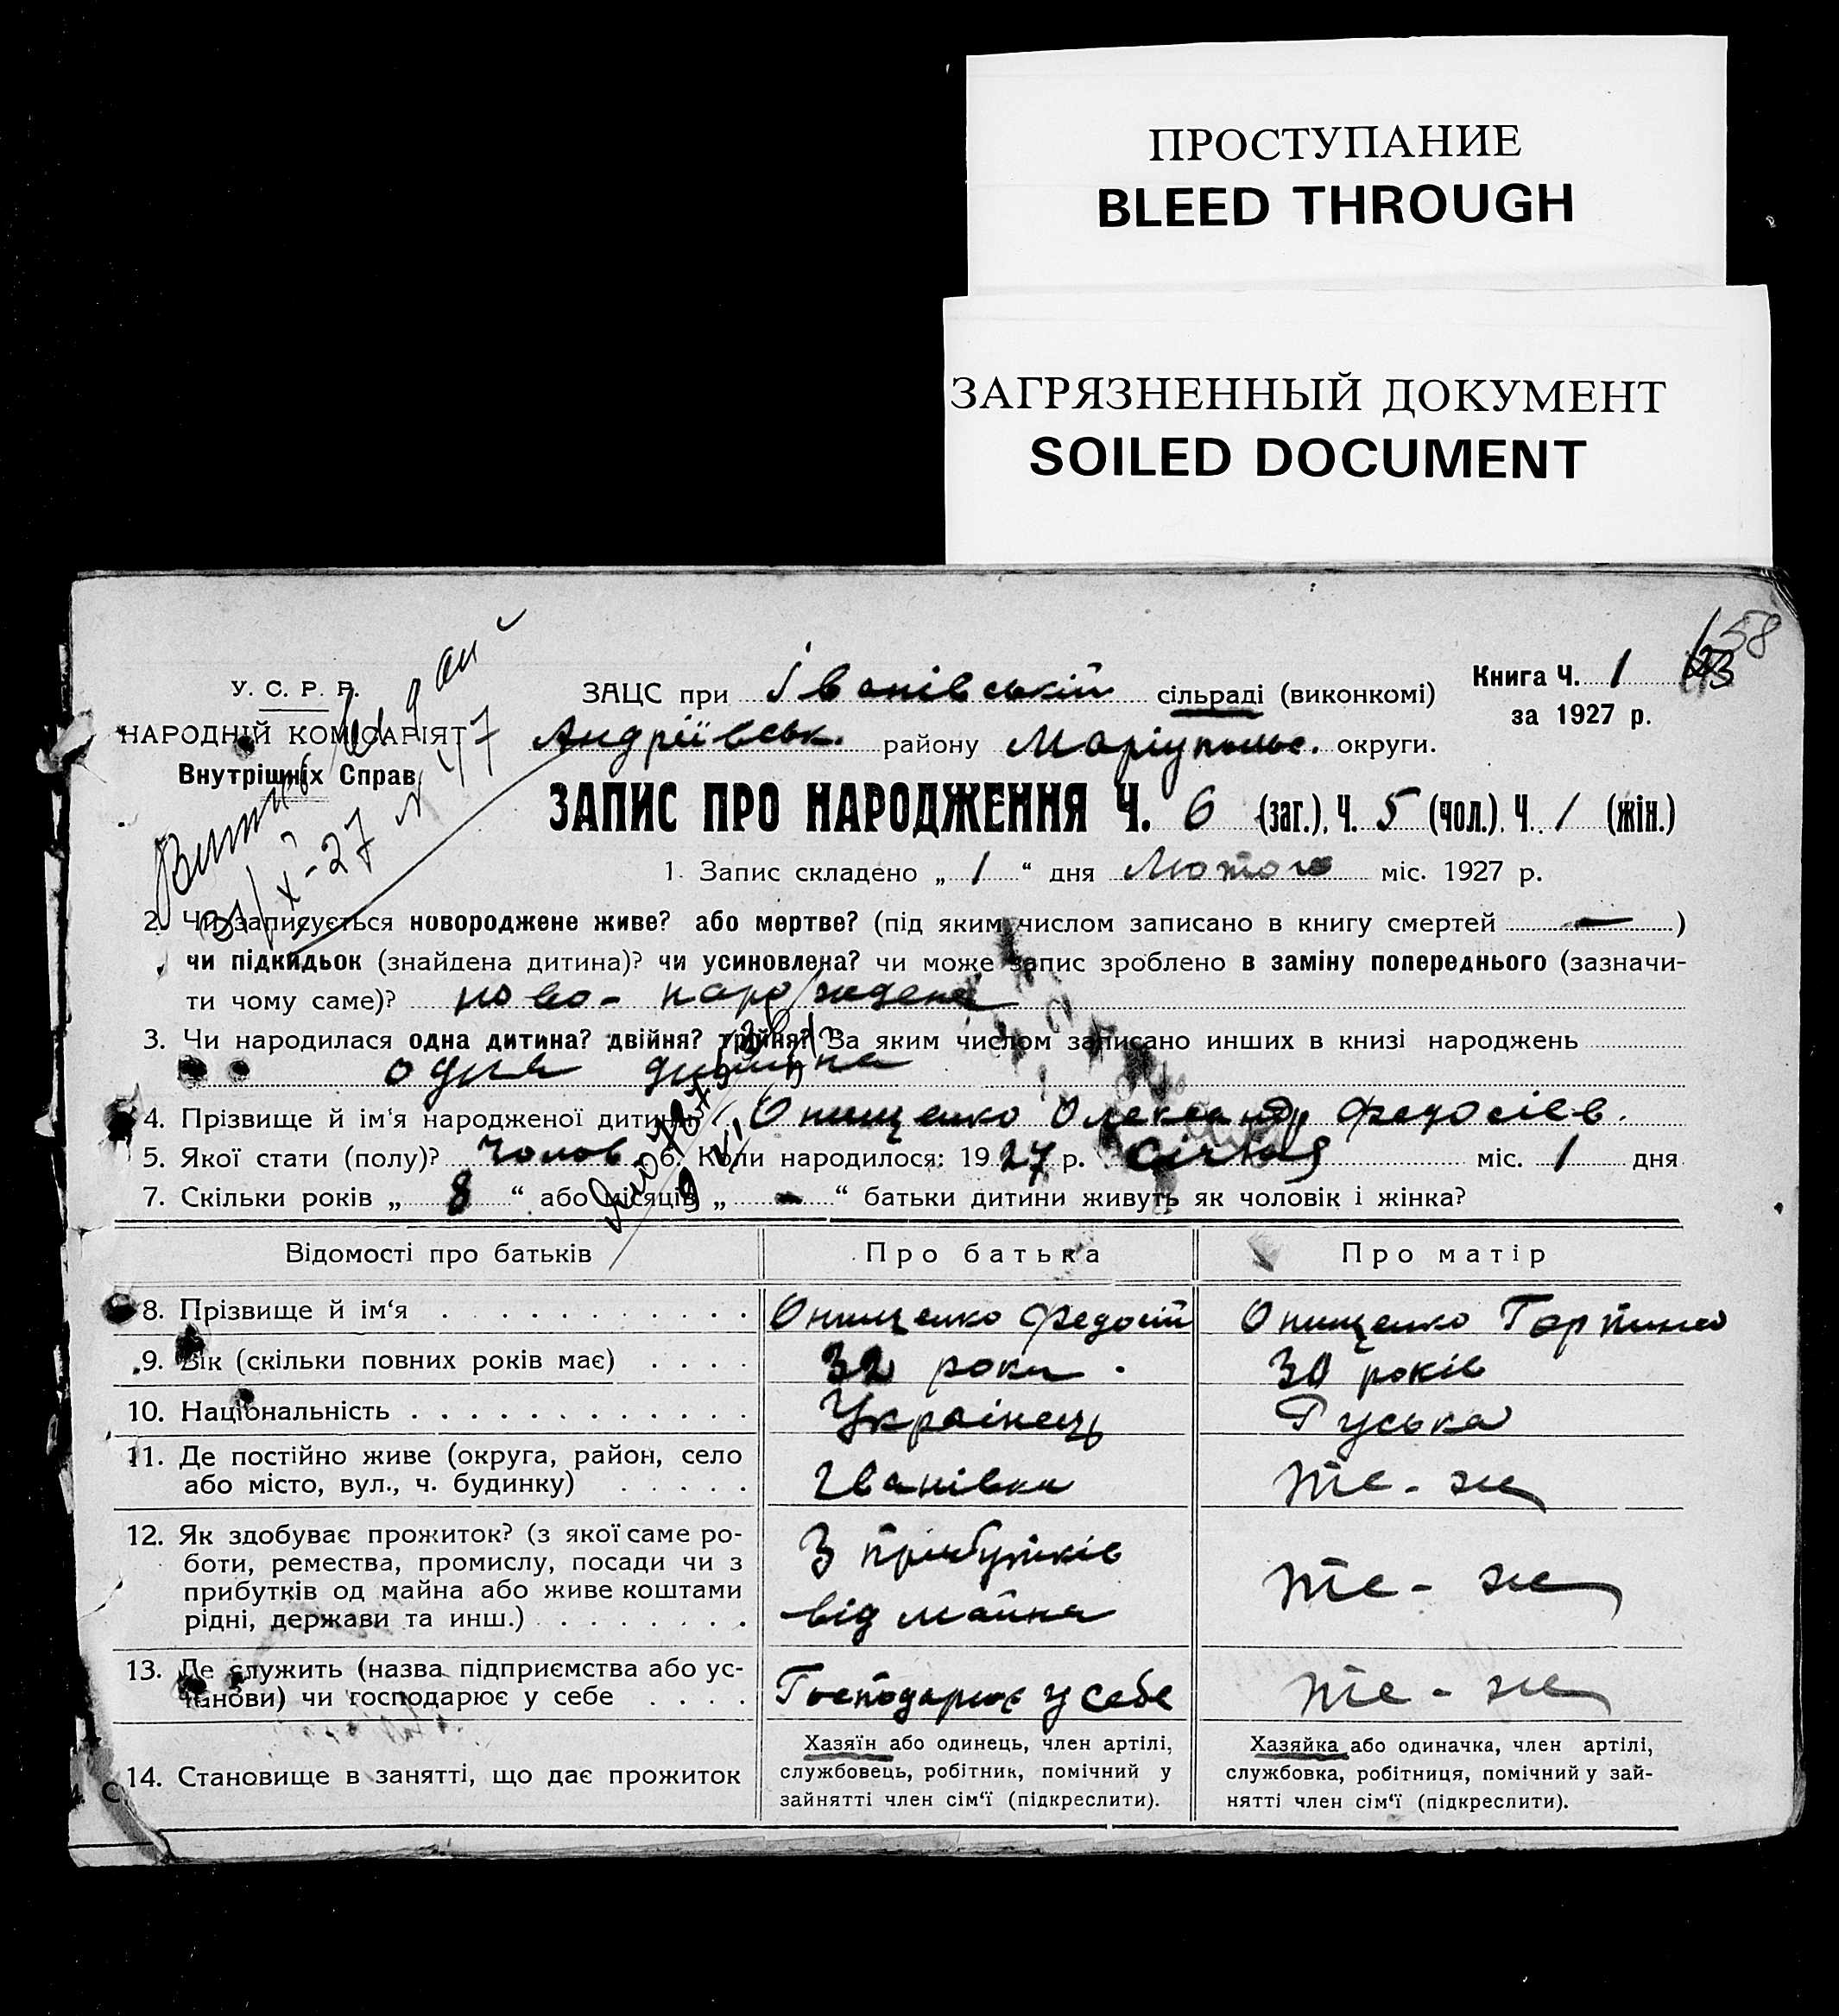 ПРОСТУПАНИЕ
BLEED THROUGH
ЗАГРЯЗНЕННЫЙ ДОКУМЕНТ
SOILED DOCUMENT
158
У. С. Р. Р.
НАРОДНІЙ КОМІСАРІЯТ
Внутрішніх Справ
ЗАЦС при Іванівській сільраді (виконкомі)
Книга Ч. 1
за 1927 р.
Андріївськ. району Маріупольс. округи.
ЗАПИС ПРО НАРОДЖЕННЯ Ч. 6 (заг.), Ч. 5 (чол.), Ч. 1 (жін.)
1. Запис складено „ 1 “ дня Лютого міс. 1927 р.
2. Чи записується новороджене живе? або мертве? (під яким числом записано в книгу смертей — )
чи підкидьок (знайдена дитина)? чи усиновлена? чи може запис зроблено в заміну попереднього (зазначи-
ти чому саме)? ново-народжена
3. Чи народилася одна дитина? двійня? трійня? За яким числом записано инших в книзі народжень
одна дитина
4. Прізвище й ім‘я народженої дитини Онищенко Олександр Федосіев.
5. Якої стати (полу)? Чолов 6. Коли народилося: 1927 р. Січня міс. 1 дня
7. Скільки років „ 8 “ або місяців „ — “ батьки дитини живуть як чоловік і жінка?
Відомості про батьків
Про батька
Про матір
8. Прізвище й ім‘я . . . . . . . . . . .
Онищенко Федосій
Онищенко Горпина
9. Вік (скільки повних років має) . . . .
32 роки.
30 років
10. Національність . . . . . . . . . . . .
Українець
Руська
11. Де постійно живе (округа, район, село
або місто, вул., ч. будинку) . . . . .
Іванівка
те-же
12. Як здобуває прожиток? (з якої саме ро-
боти, ремества, промислу, посади чи з
прибутків од майна або живе коштами
рідні, держави та инш.) . . . . . . .
З прибутків
від майна
те-же
13. Де служить (назва підприємства або ус-
танови) чи господарює у себе . . . .
Господарює у себе
те-же
14. Становище в занятті, що дає прожиток
Хазяїн або одинець, член артілі,
службовець, робітник, помічний у
зайнятті член сім‘ї (підкреслити).
Хазяйка або одиначка, член артілі,
службовка, робітниця, помічний у зай-
нятті член сім‘ї (підкреслити).